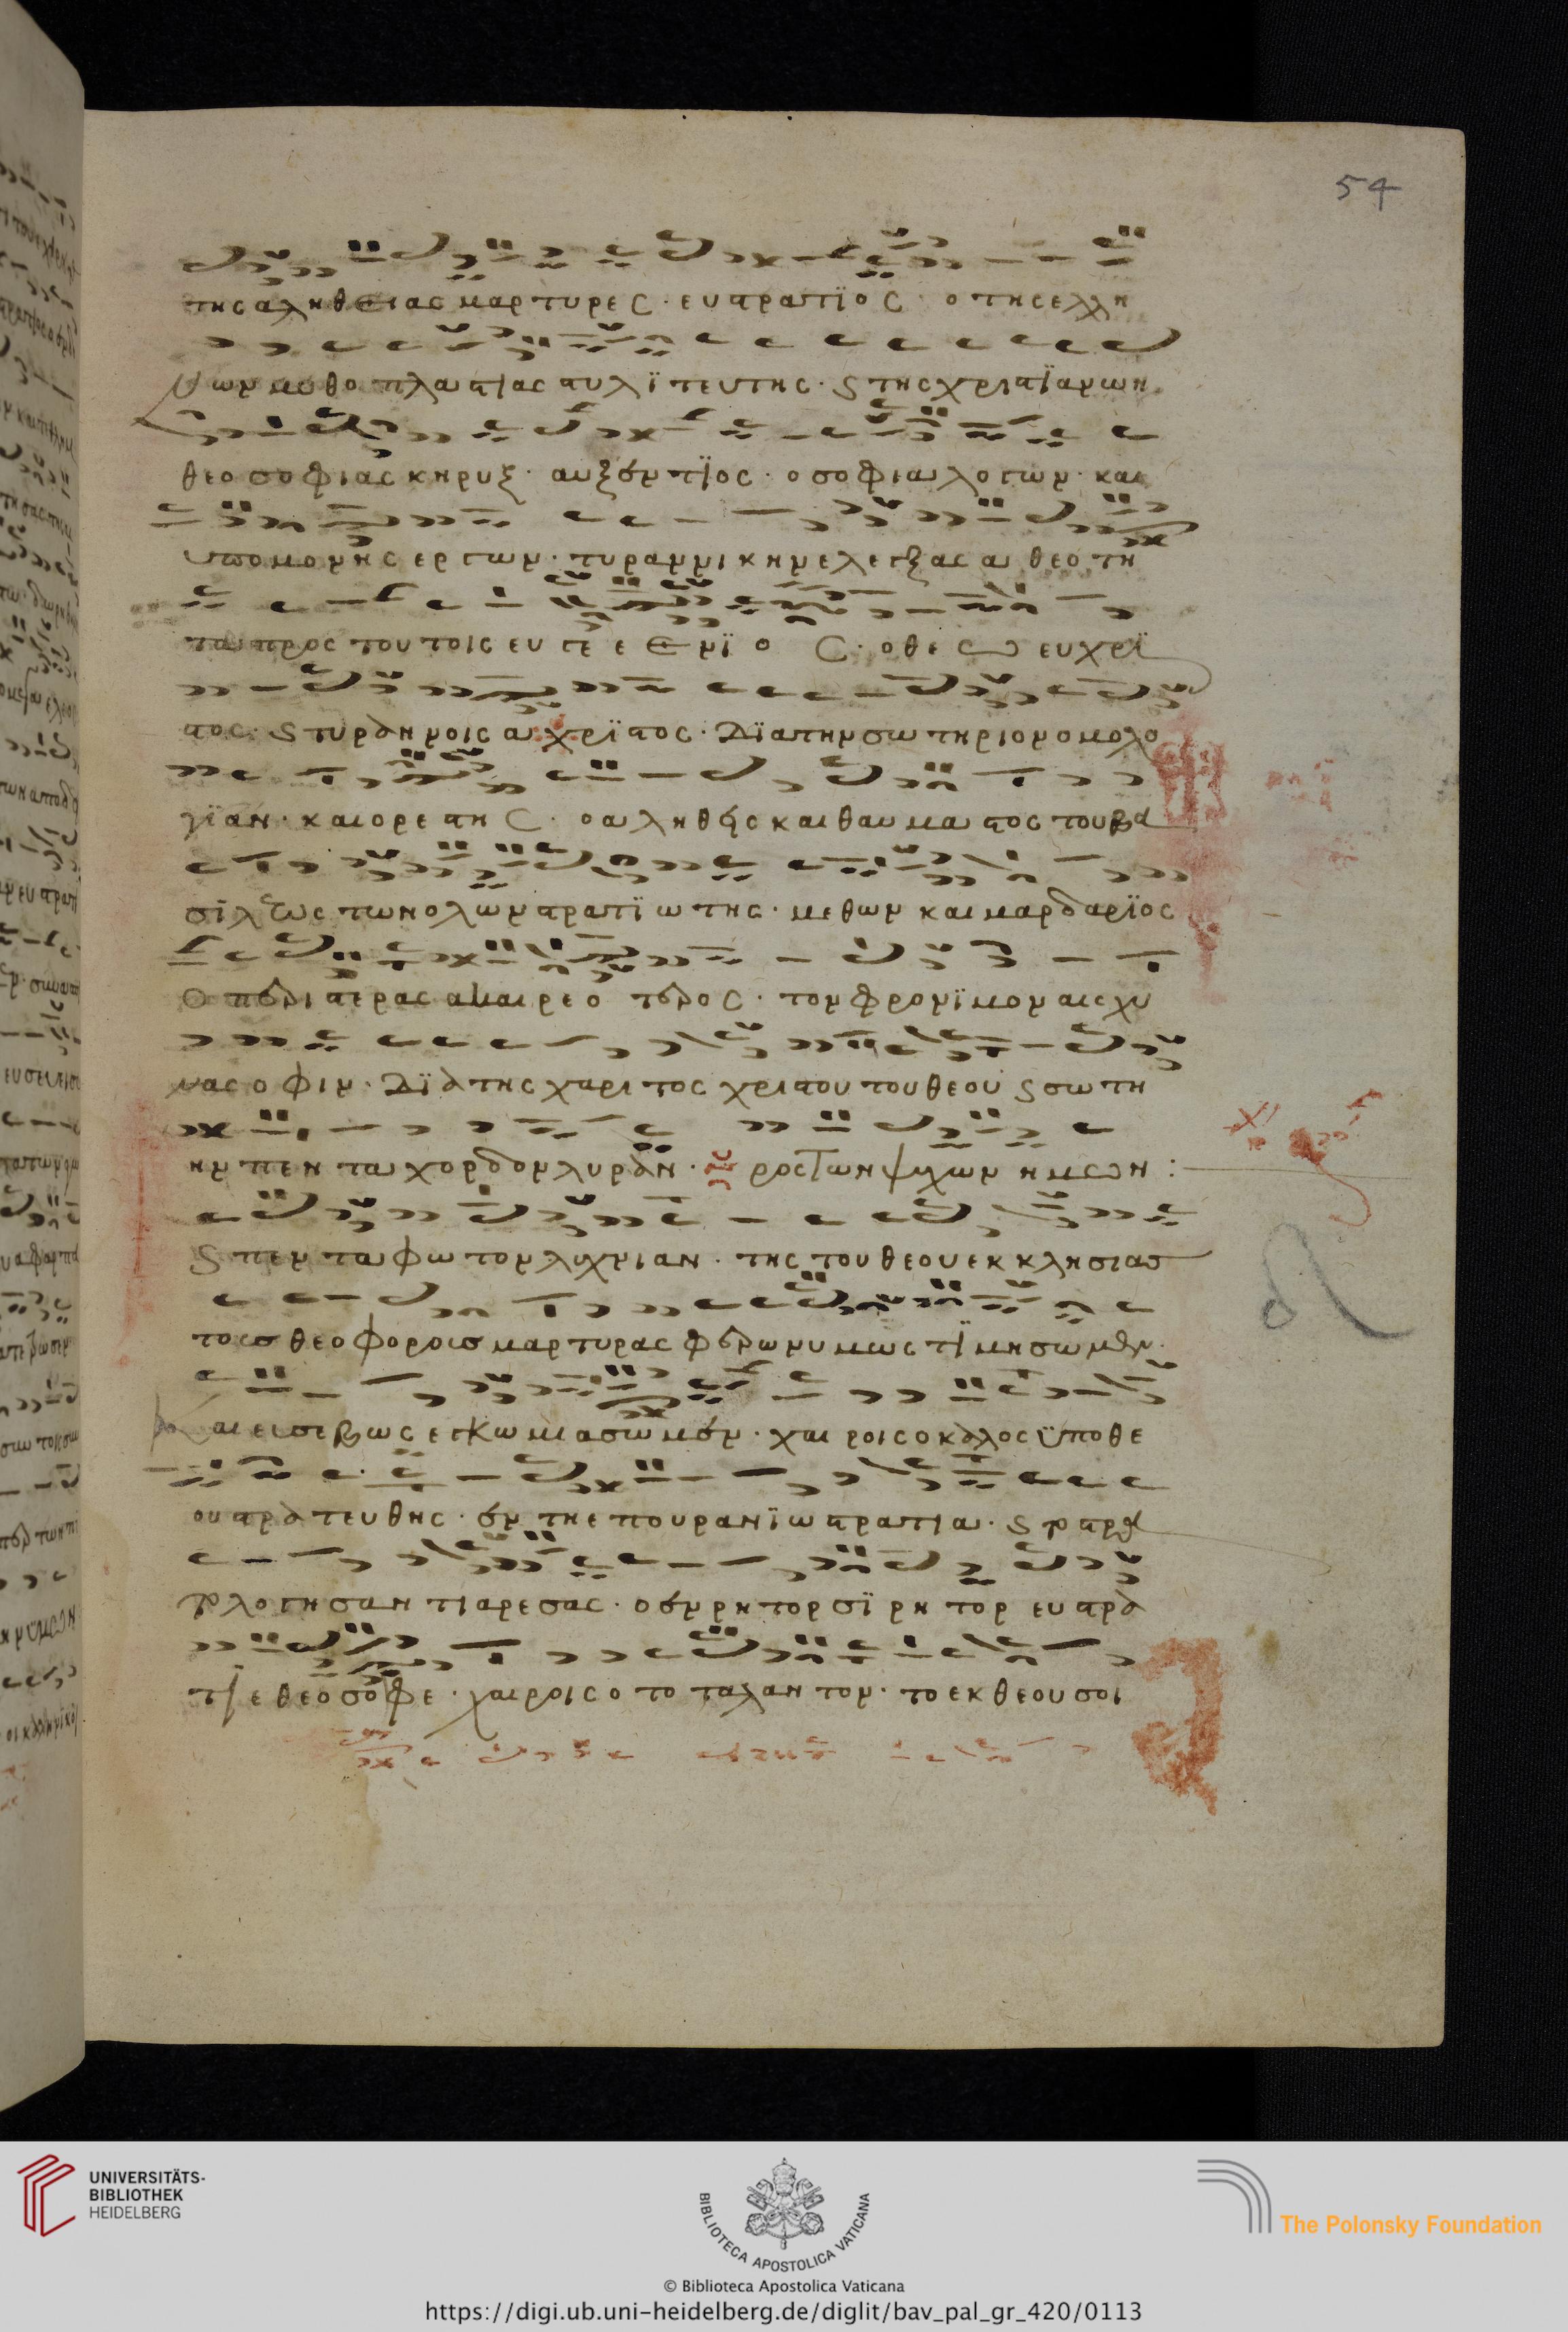 54
της αληθειας μαρτυρες · ευστρατϊος · ο της ελλη
νων μεθο πλαστιας στυλϊτευτης · ϛ της χριστϊανων
θεοσοφιας κηρυξ · αυξεντϊος · ο σοφια λογων · και
υπομονης εργων · τυραννικην ελεγξας αθεοτη
τα προς τουτοις ευγε ε ενϊο ς · ο θε ευχρϊ
στος · ϛ τυράννοις αχρϊστος · Δϊα την σωτηριον ομολο
γϊαν · και ορεστης · ο αληθης και θαυμαστος του βα
σϊλεως των ολων στρατϊωτης · μεθ ων και μαρδαρϊος
ο περιστερας ακαιρεοτερος · τον φρονϊμον αισχυ
νας οφιν · Δϊα της χαριτος χριστου του θεου ϛ σωτη
ην πενταχορδον λυραν · ρος των ψυχων ημων :
ϛ πενταφωτον λυχνιαν · της του θεου εκκλησιας
τοισ θεοφοροισ μαρτυρας φερωνυμως τϊμησωμεν ·
και ευσεβως εγκωμιασωμεν · χαιροις ο καλος ϋπο θε
ου στρατευθης · εν τη επουρανϊω στρατια · ϛ τω στρα
τολογησαντι αρεσας · ο εν ρητορσϊ ρητορ ευστρα
τιε θεοσοφε · χαιροις ο το ταλαντον · το εκ θεου σοι
UNIVERSITÄTS-
BIBLIOTHEK
HEIDELBERG
BIBLIOTECA APOSTOLICA VATICANA
The Polonsky Foundation
© Biblioteca Apostolica Vaticana
https://digi.ub.uni-heidelberg.de/diglit/bav_pal_gr_420/0113